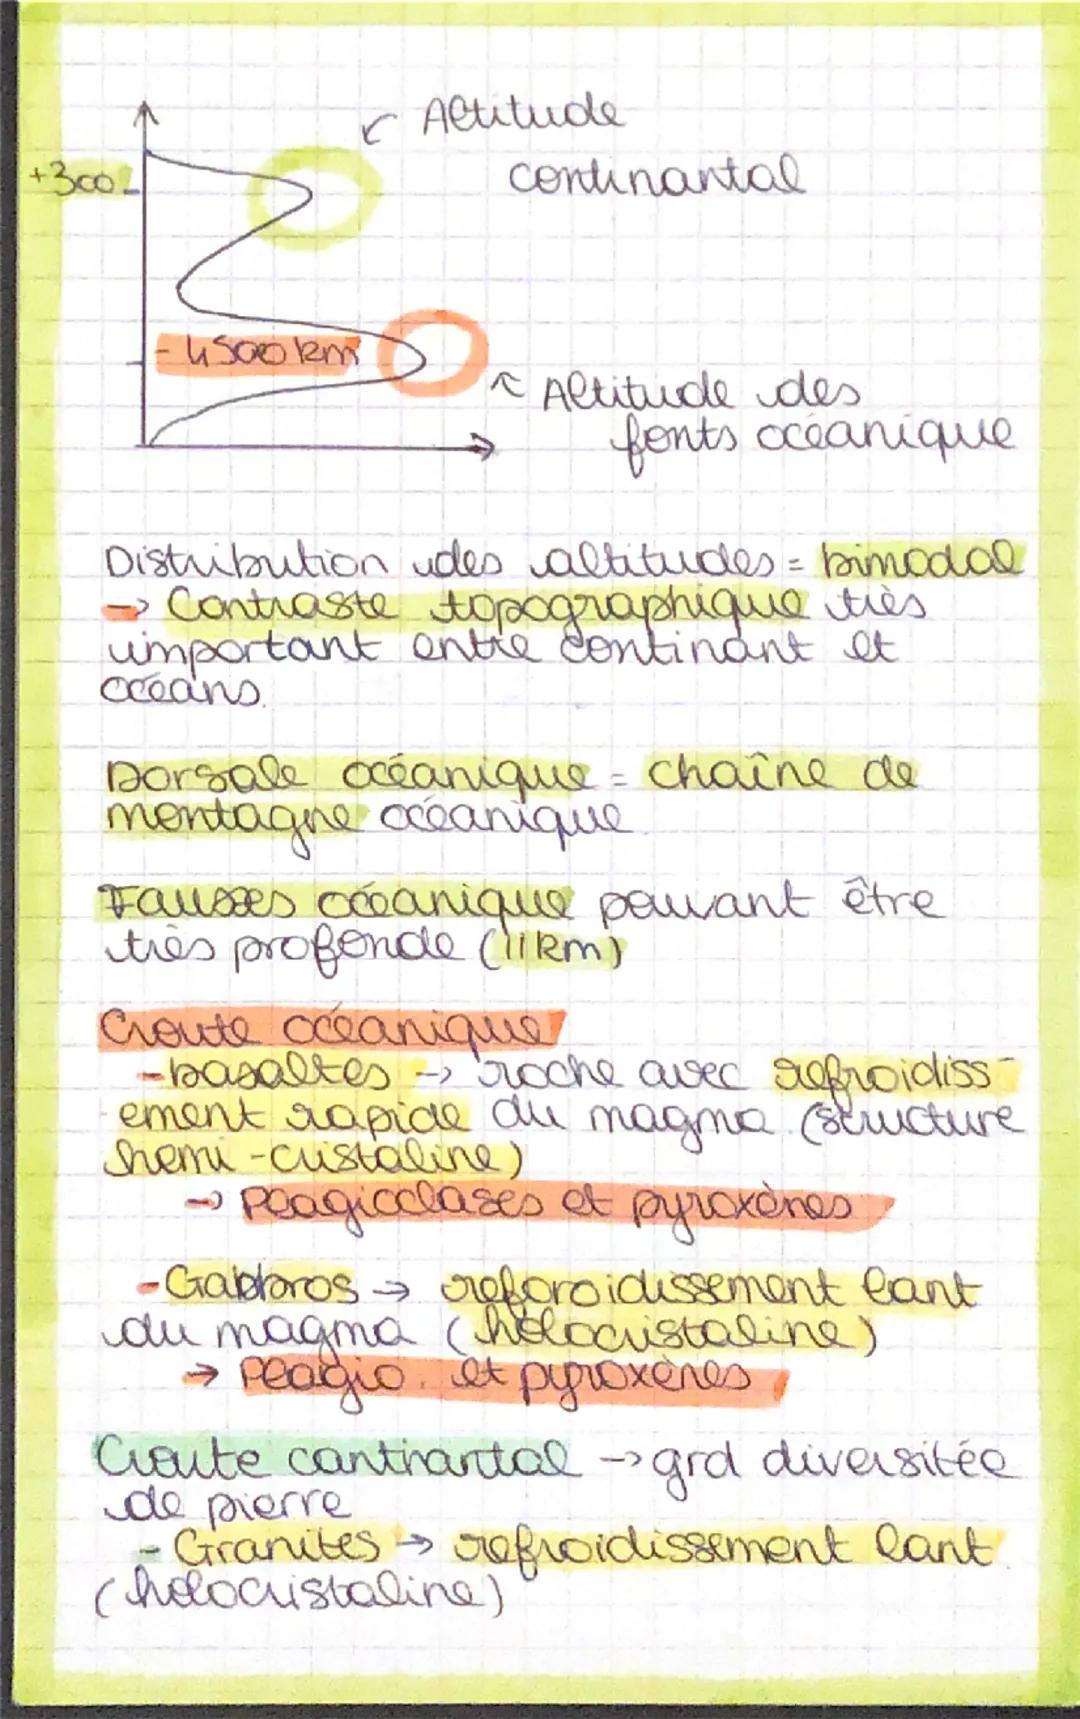 Altitude
continantal
+300
- 4500 km
Altitude des
fonts océanique
Distribution des altitudes = bimodal
→ Contraste topographique très
important entre continant et
océans.
Dorsale océanique = chaîne de
montagne océanique
Fausses océanique pouvant être
très profonde (11km)
Croute océanique
- basaltes → roche avec refroidiss-
ement rapide du magma (structure
hemi-cristaline)
→ Plagioclases et pyroxènes
- Gabbros → reforoidissement lant
du magma (holocristaline)
→ Plagio. et pyroxènes
Croute continantal → grd diversitée
de pierre
- Granites → refroidissement lant.
(holocristaline)